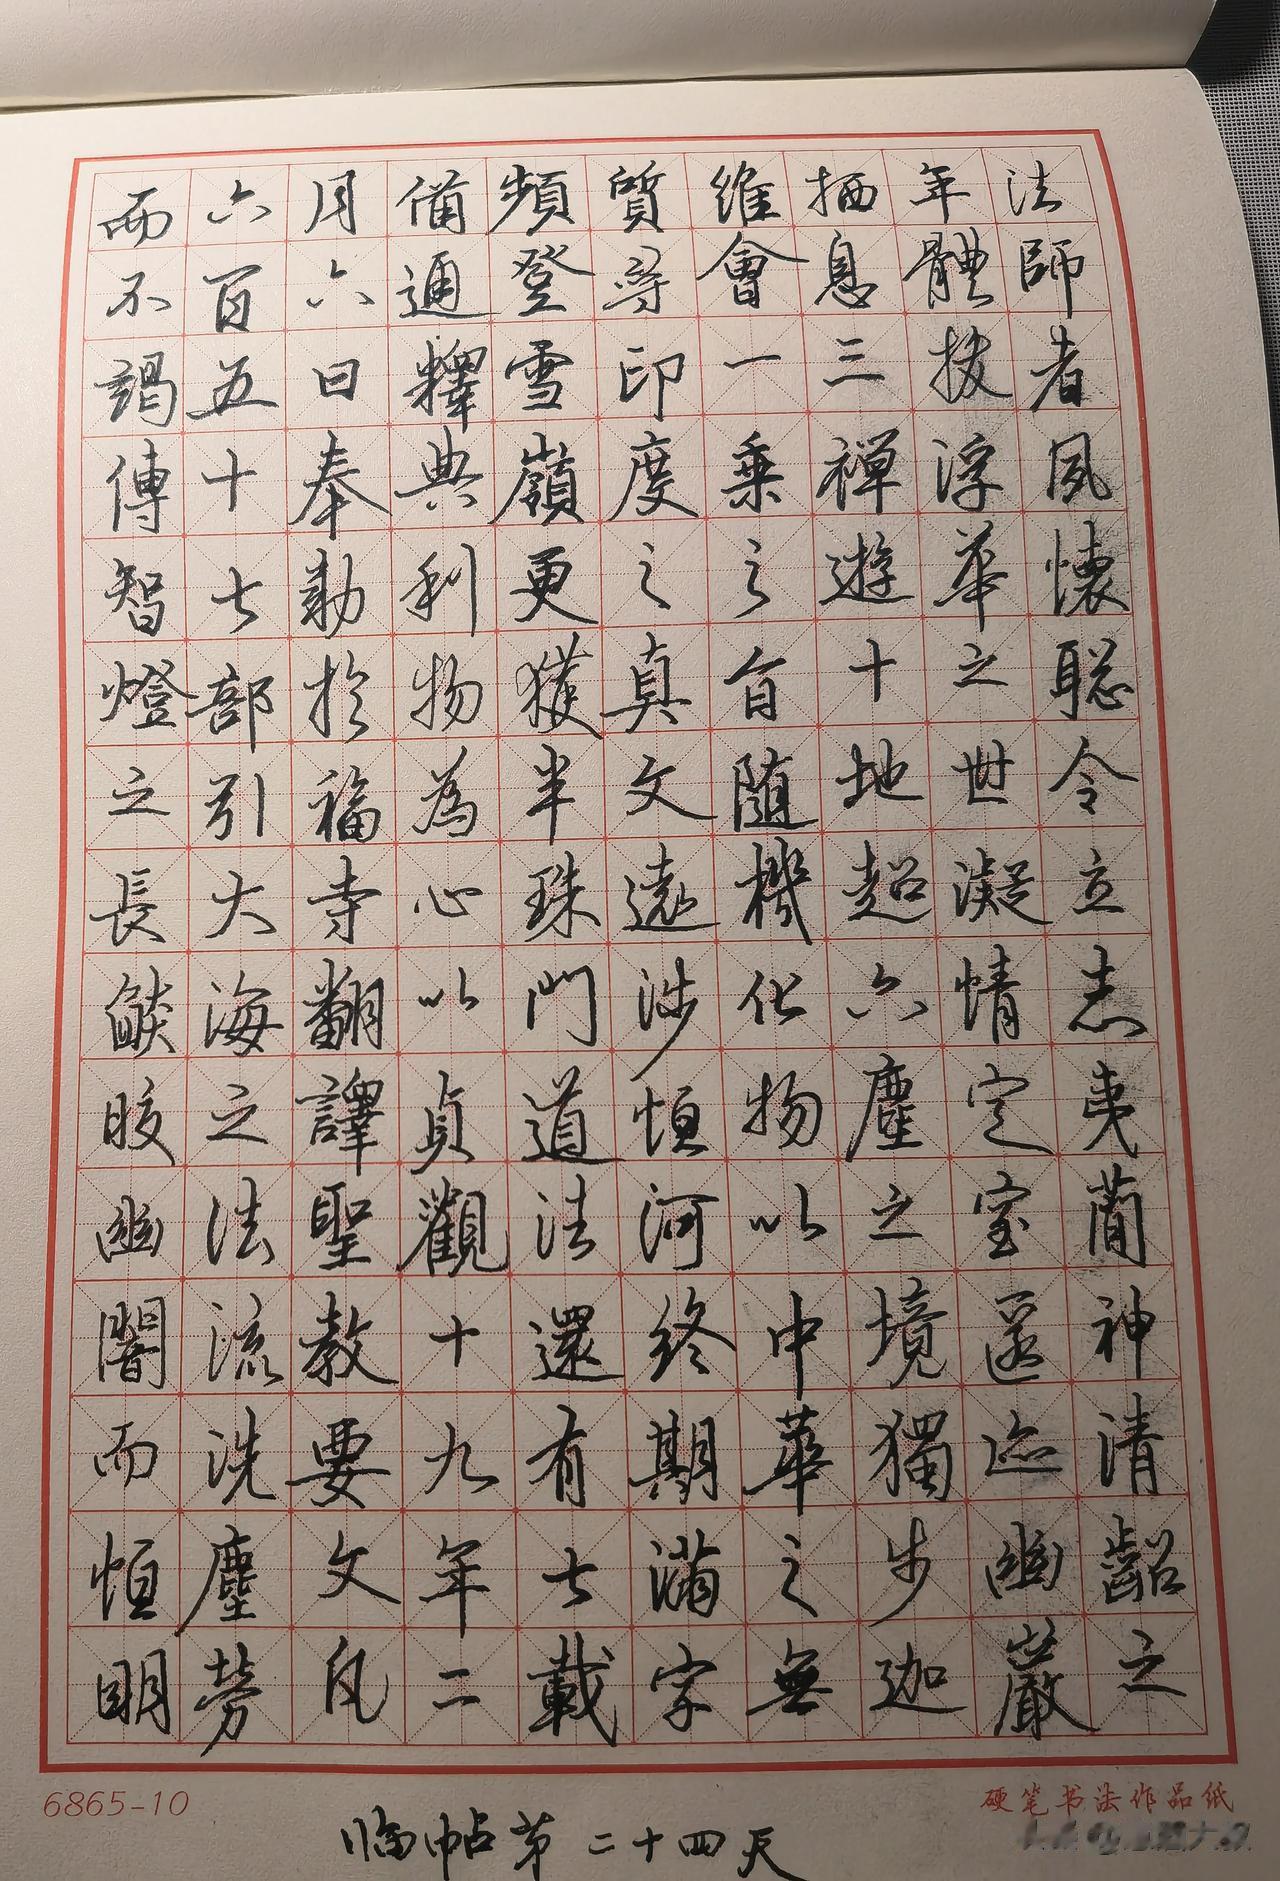 法師者夙懷聰令立志夷蕳神清齠之
年體拔浮華之世凝情定室匿迹幽巖
栖息三禅遊十地超六塵之境獨步迦
維會一乗之旨随機化物以中華之無
質尋印度之真文遠涉恒河終期滿字
頻登雪嶺更獲半珠門道法還有七載
備通釋典利物為心以貞觀十九年二
月六日奉勅於福寺翻譯聖教要文凡
六百五十七部引大海之法流洗塵勞
而不竭傳智燈之長燄晈幽闇而恒明
6865-10
硬笔书法作品纸
临帖第二十四天